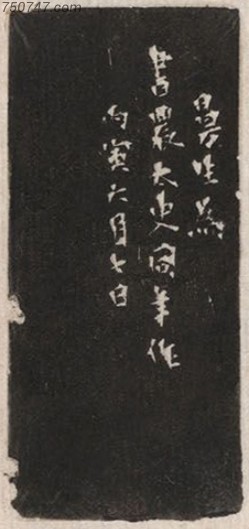 750747.com
曼生為
書農太史同年作
丙寅六月七日